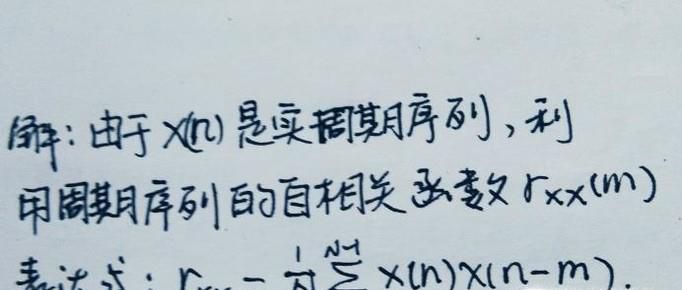 解：由于 x(n) 是实周期序列，利
用周期序列的自相关函数 rxx(m)
表达式：r = 1/N N-1 Σ x(n)x(n-m).